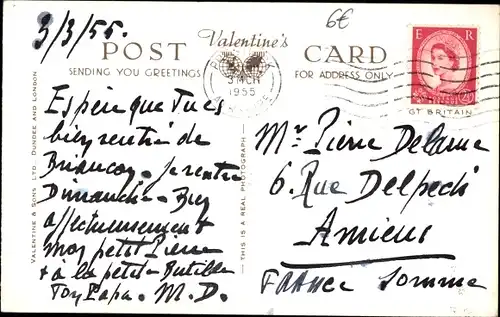 3/3/55.
6€
POST Valentine's CARD
SENDING YOU GREETINGS
FOR ADDRESS ONLY
3 MCH
1955
E R
GT BRITAIN
VALENTINE & SONS LTD. DUNDEE AND LONDON
THIS IS A REAL PHOTOGRAPH
Espère que tu es
bien rentré de
Briançon. Je rentre
Dimanche. Bien
affectueusement
mon petit Pierre
& à la petite
Ton Papa. M.D.
Mr Pierre
6. Rue Delpech
Amiens
FRANCE Somme